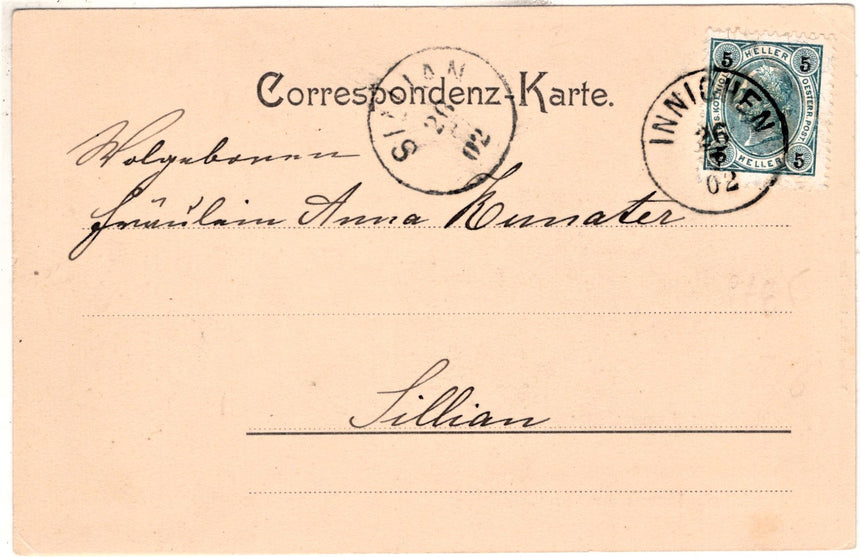 Correspondenz-Karte.
SILLIAN
26
02
5 HELLER 5
OESTERR. POST.
5 HELLER 5
INNICHEN
26
5
02
Wolgeboren
Fräulein Anna Kunater
Sillian